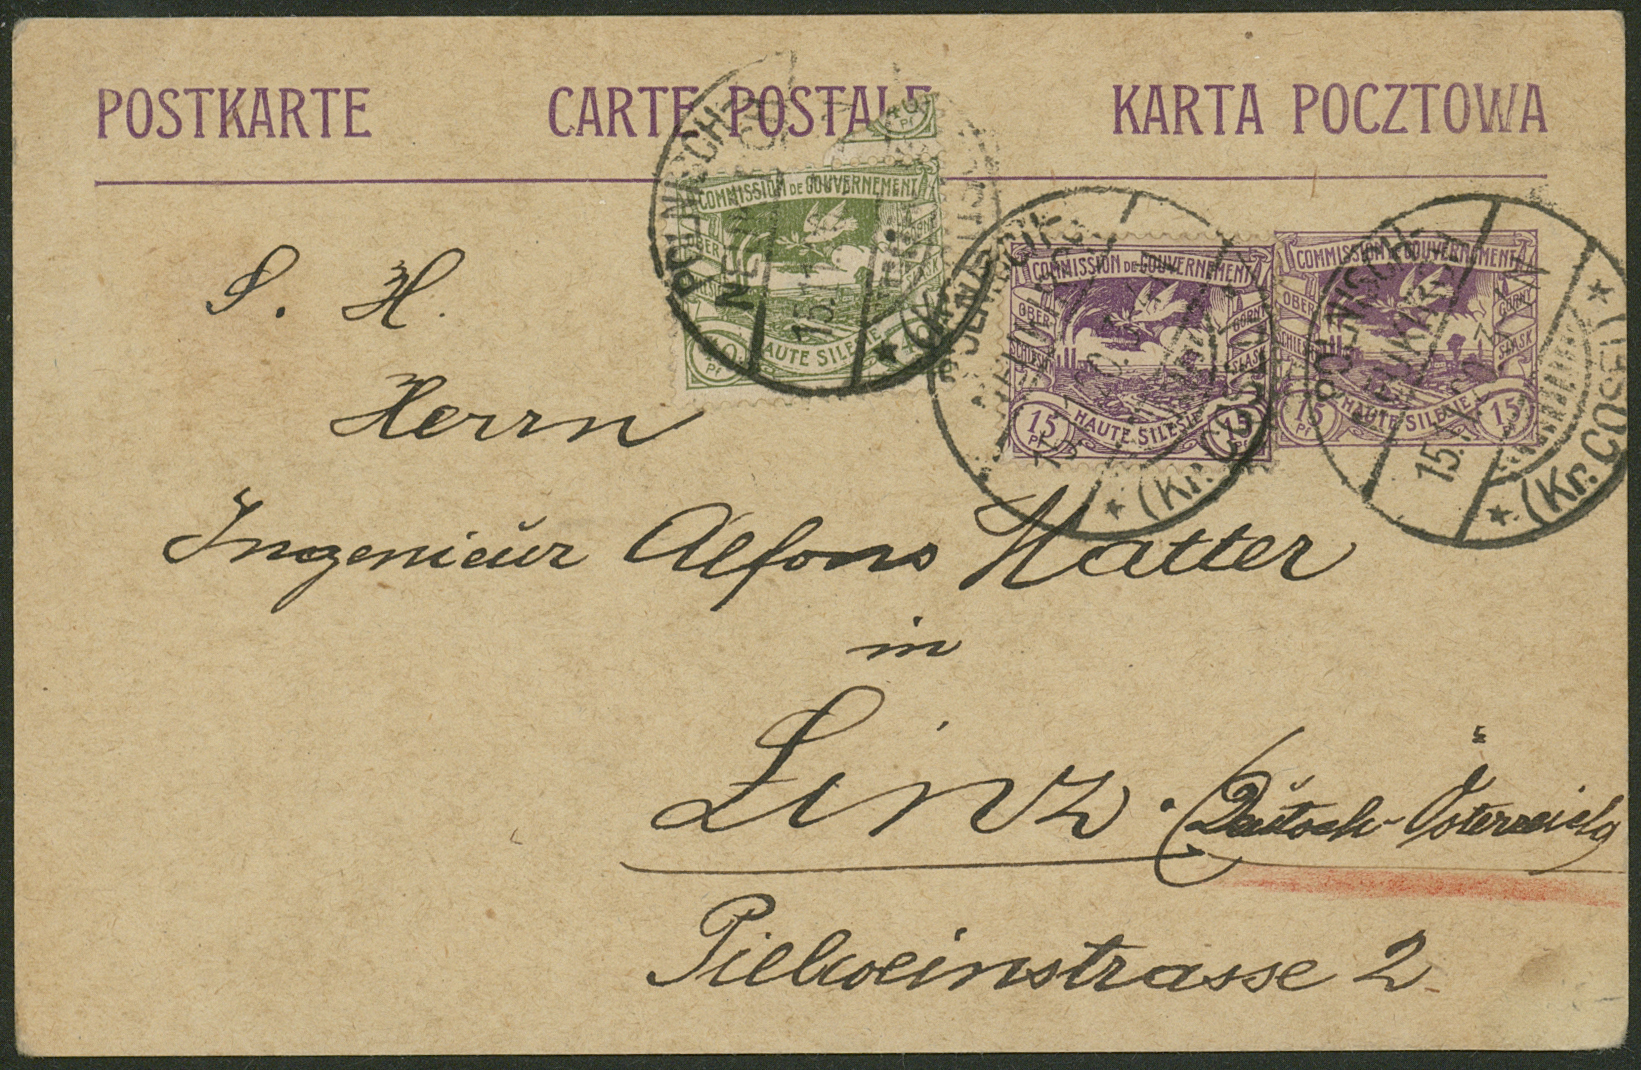 POSTKARTE CARTE POSTALE KARTA POCZTOWA
COMMISSION DE GOUVERNEMENT
OBER SCHLESIEN GÓRNY ŚLĄSK
HAUTE SILESIE
40 Pf
COMMISSION DE GOUVERNEMENT
OBER SCHLESIEN GÓRNY ŚLĄSK
HAUTE SILESIE
15 Pf 15 Pf
COMMISSION DE GOUVERNEMENT
OBER SCHLESIEN GÓRNY ŚLĄSK
HAUTE SILESIE
15 Pf 15 Pf
(Kr. COSEL)
S. H.
Herrn
Ingenieur Alfons Hatter
in
Linz. (Deutsch-Österreich)
Pillweinstrasse 2